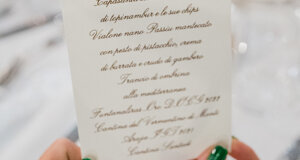 di topinambur e le sue chips
Vialone nano Passiu mantecato
con pesto di pistacchio, crema
di burrata e crudo di gambero
Trancio di ombrina
alla mediterranea
Fontanaliras Oro D.O.C.G 2022
Cantina del Vermentino di Monti
I.G.T 2021
Cantina